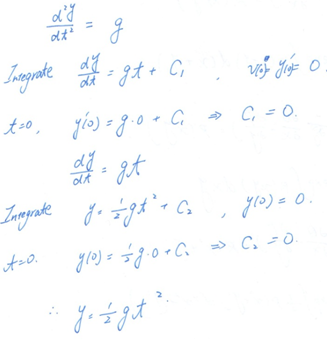 d²y/dt² = g
Integrate dy/dt = gt + C₁ , v(0) = y'(0) = 0
t=0, y'(0) = g·0 + C₁ ⇒ C₁ = 0.
dy/dt = gt
Integrate y = ½gt² + C₂ , y(0) = 0.
t=0. y(0) = ½g·0 + C₂ ⇒ C₂ = 0.
∴ y = ½gt².